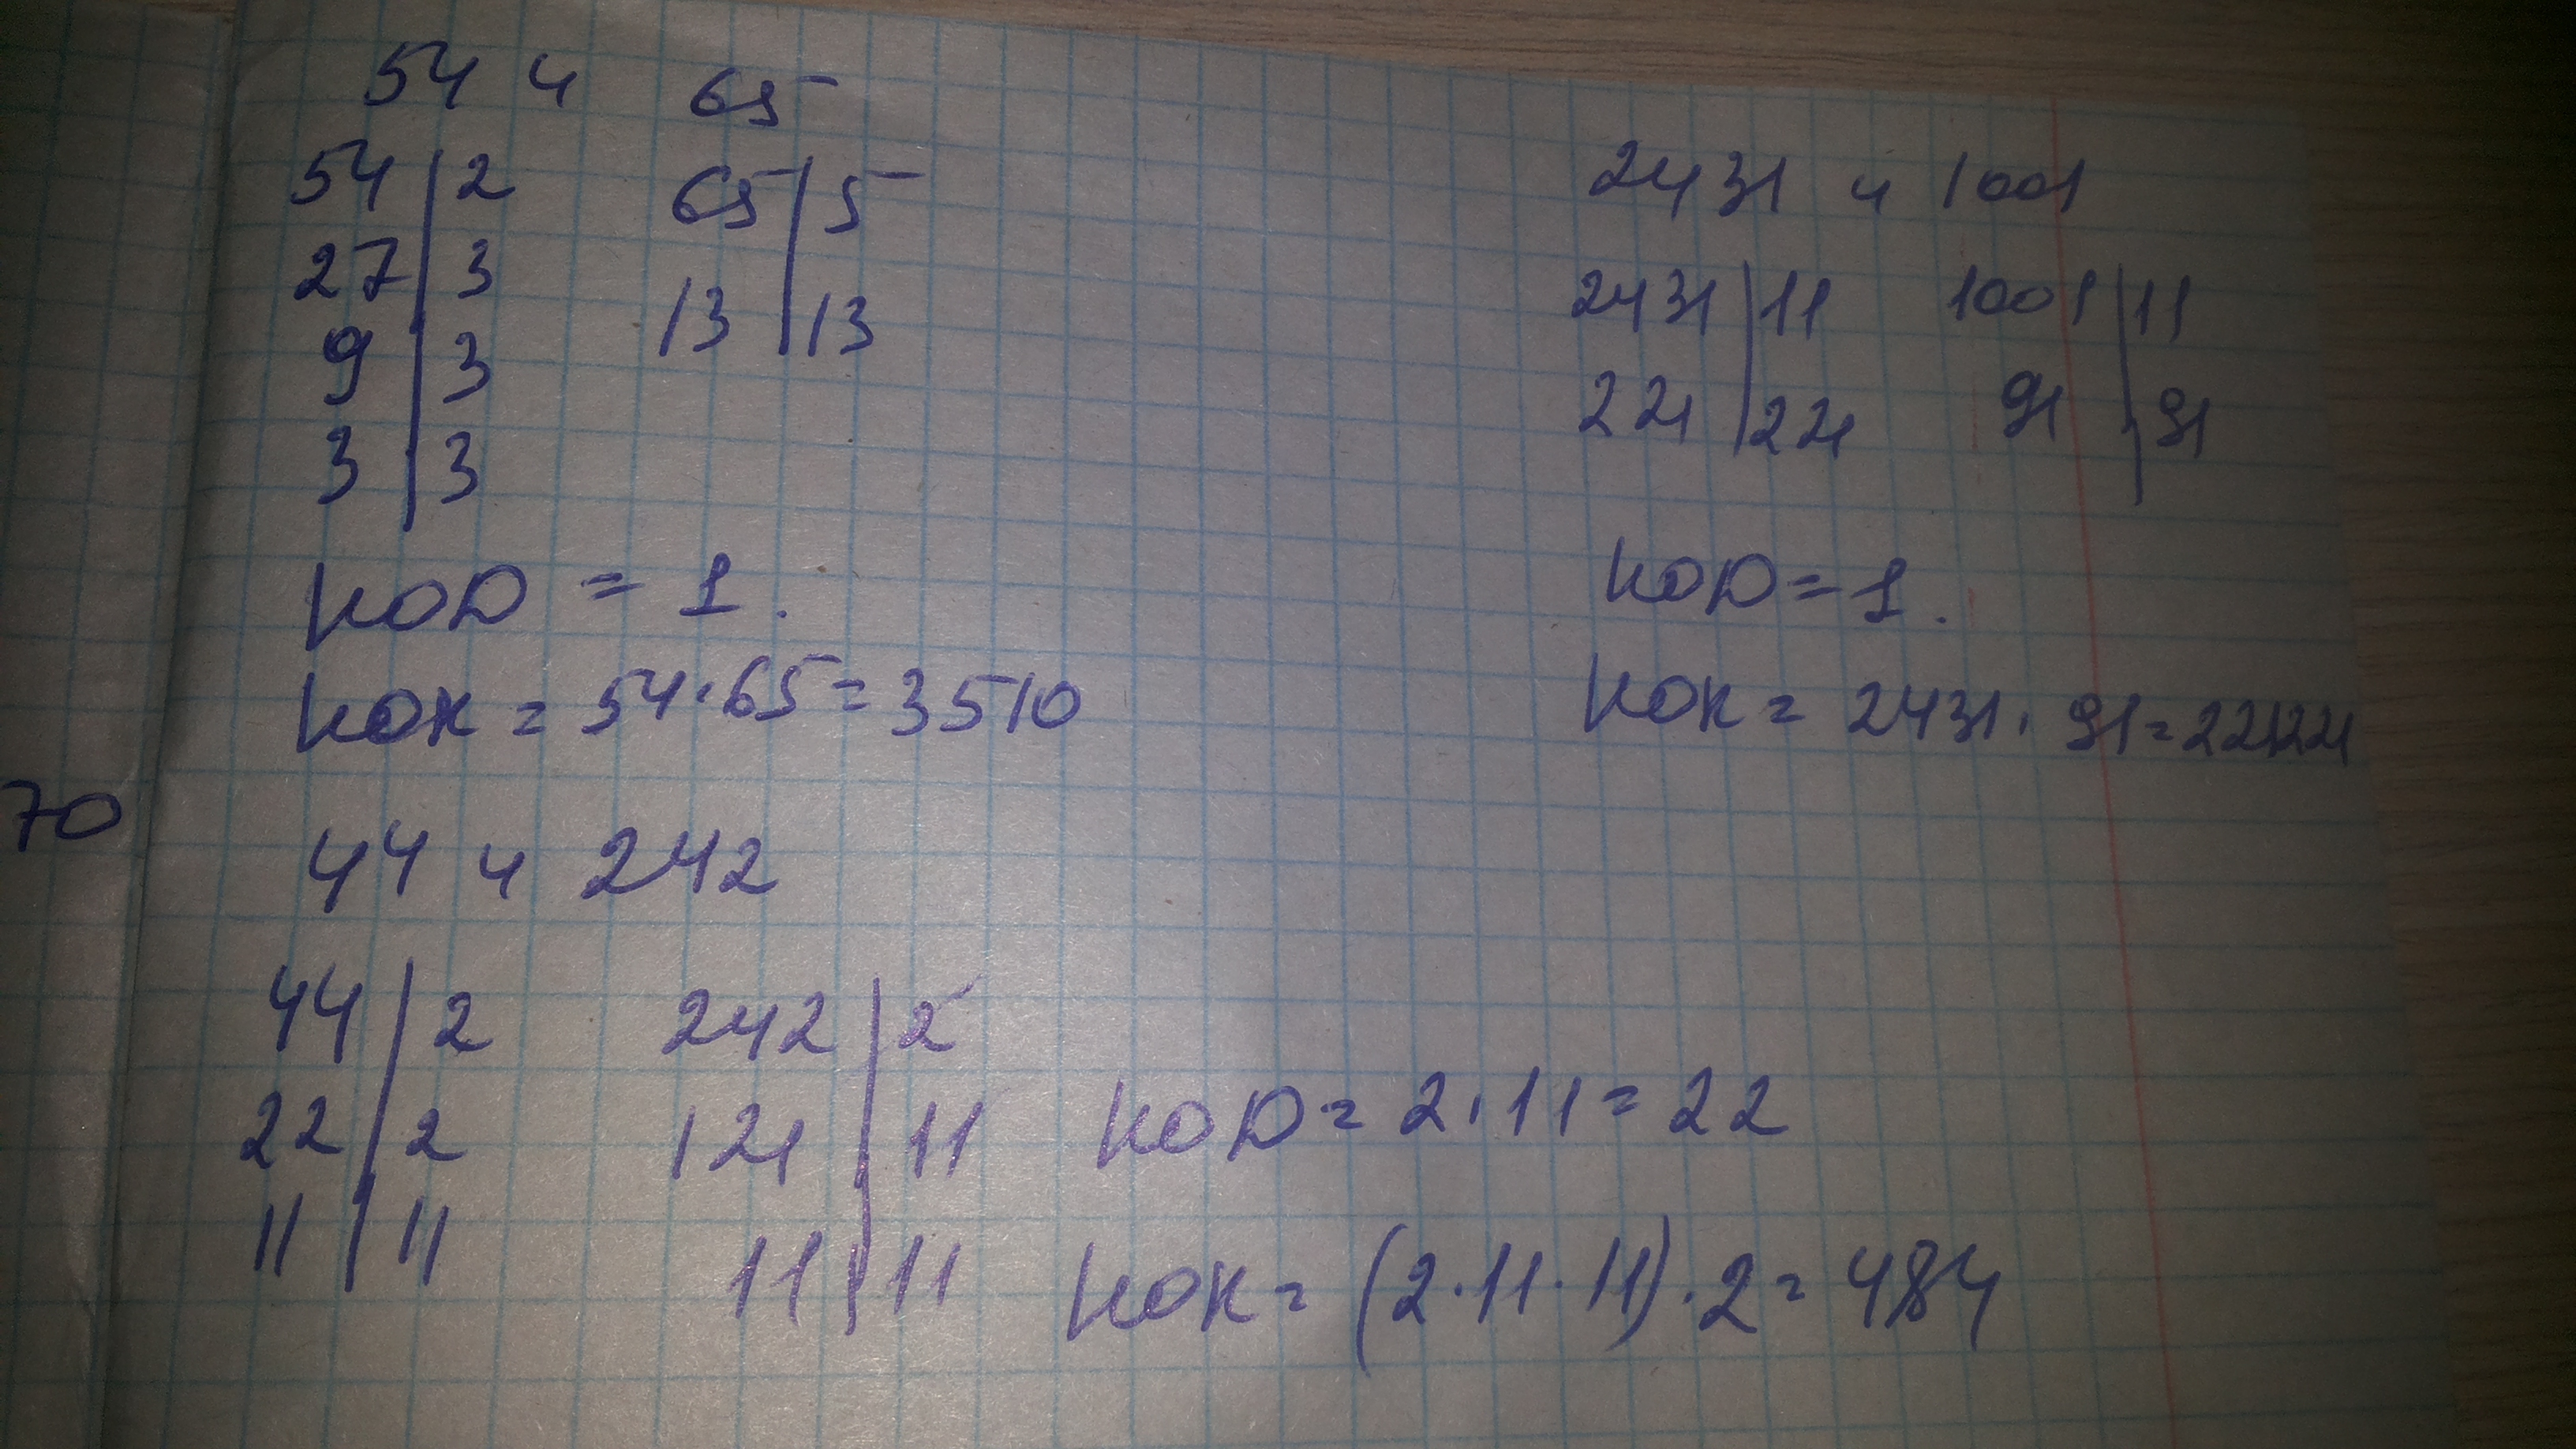 54 и 65
54 | 2 65 | 5
27 | 3 13 | 13
9 | 3
3 | 3
НОД = 1.
НОК = 54·65=3510
2431 и 1001
2431 | 11 1001 | 11
221 | 221 91 | 91
НОД = 1.
НОК = 2431·91=221221
70
44 и 242
44 | 2 242 | 2
22 | 2 121 | 11
11 | 11 11 | 11
НОД = 2·11=22
НОК = (2·11·11)·2=484